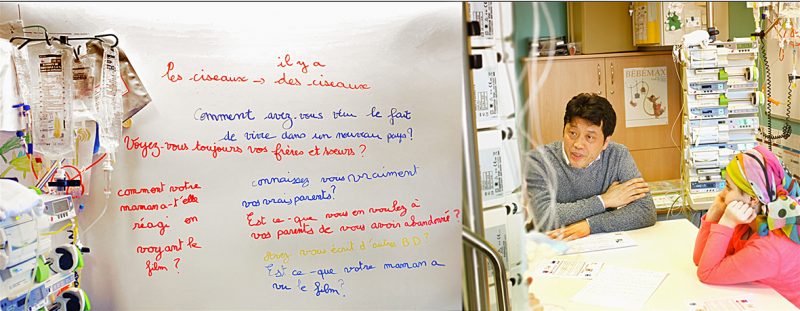 il y a
les ciseaux → des ciseaux
Comment avez-vous vécu le fait
de vivre dans un nouveau pays?
Voyez-vous toujours vos frères et sœurs ?
comment votre
maman a-t'elle
réagi en
voyant le
film ?
connaissez vous vraiment
vos vrais parents?
Est ce-que vous en voulez à
vos parents de vous avoir abandonné ?
Avez vous écrit d'autres BD?
Est ce-que votre maman a
vu le film?
BÉBÉMAX